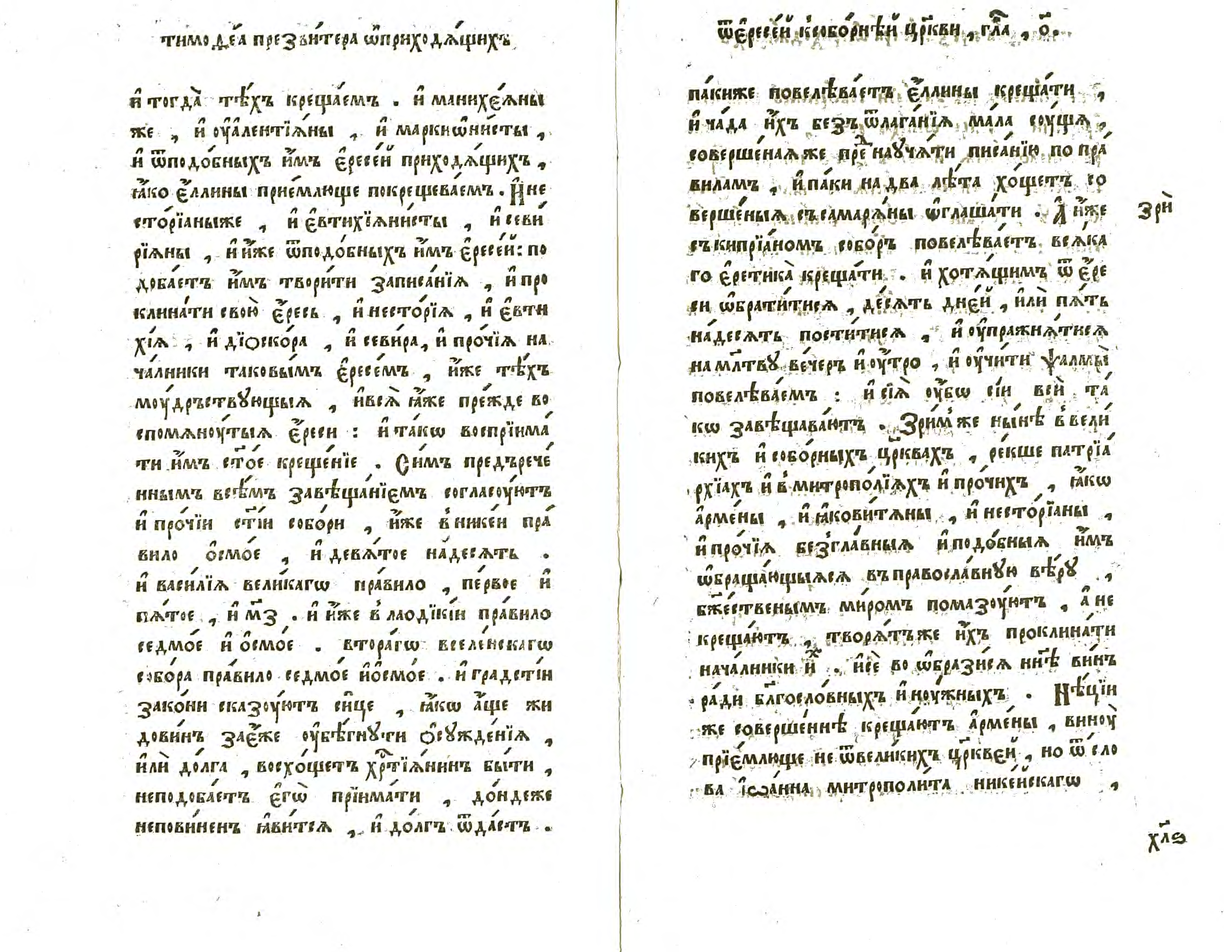 тимоѳе́а презви́тера ѡ҆приходѧ́щихъ
и҆ тогда̀ тѣ́хъ креща́емъ . и҆ манихе́ѧны
же , и҆ ѹ҆алентїѧ́ны , и҆ маркиѡни́сты ,
и҆ ѿподо́бныхъ и҆̀мъ є҆ресе́й приходѧ́щихъ ,
ꙗ҆́ко є҆́ллины прие́млюще покрещева́емъ . И҆ не
сторїаныже , и҆ є҆втихїѧни́сты , и҆ севи
рїѧны , и҆ и҆́же ѿподо́бныхъ и҆̀мъ є҆ресе́й : по
доба́етъ и҆̀мъ твори́ти записа́нїѧ , и҆ про
клина́ти свою̀ є҆́ресь , и҆ несто́рїѧ , и҆ є҆вти
хі́ѧ , и҆ дїоско́ра , и҆ севи́ра , и҆ про́чїѧ на
ча́лники таковы́мъ є҆́ресемъ , и҆́же тѣ́хъ
моу́дрьствꙋющыѧ , и҆всѧ̀ ꙗ҆́же пре́жде во
спомѧноу́тыѧ є҆́реси : и҆ та́кѡ воспрїима́
ти и҆̀мъ ст҃о́е креще́нїе . Си́мъ предърече́
ннымъ всѣ́мъ завѣща́нїємъ согласоу́ютъ
и҆ про́чїи ст҃і́и собо́ри , и҆́же в никеи пра́
вило о҆смо́е , и҆ девѧ́тое на́десѧть .
и҆ васи́лїѧ вели́кагѡ пра́вило , пе́рвое и҆
пѧ́тое , и҆ м҃з . и҆ и҆́же в лаодїкі́и пра́вило
седмо́е и҆ о҆смо́е . втора́гѡ вселе́нскагѡ
собо́ра пра́вило седмо́е и҆о҆смо́е . и҆ градсті́и
зако́ни сказоу́ютъ си́це , ꙗ҆́кѡ а҆́ще жи
дови́нъ за є҆́же ѹ҆бѣ́гнꙋти ѡ҆сꙋжде́нїѧ ,
и҆лѝ до́лга , восхо́щетъ хр҇тїѧ́нинъ бы́ти ,
неподоба́етъ є҆гѡ̀ прїима́ти , до́ндеже
непови́ненъ ꙗ҆ви́тсѧ , и҆ до́лгъ ѿда́стъ .
ѿє҆ресе́й ксобо́рнѣй цр҃кви , гл҃а , о҃ .
па́киже повелѣва́етъ є҆́ллины креща́ти ,
и҆ ча́да и҆́хъ безъ ѿлага́нїѧ ма́ла соу́щѧ ,
соверше́наѧже пред̾наꙋча́ти писа́нїю по пра́
виламъ , и҆ па́ки на два лѣ́та хо́щетъ со
верше́ныѧ съсамарѧ́ны ѡ҆глаша́ти . А҆ и҆́же
съкипрїа́номъ собо́ръ повелѣва́етъ всѧ́ка
го є҆ретика̀ креща́ти . и҆ хотѧ́щимъ ѿ є҆́ре
си ѡ҆брати́тисѧ , де́сѧть дне́й , и҆лѝ пѧ́ть
на́десѧть пости́тисѧ , и҆ ѹ҆пражнѧ́тисѧ
на мл҃твꙋ ве́черъ и҆ ѹ҆́тро , и҆ ѹ҆чи́ти ѱалмы̀
повелѣва́емъ : и҆ сїѧ̀ ѹ҆́бѡ сі́и всѝ та́
кѡ завѣщава́ютъ . Зри́мже ны́нѣ в вели́
кихъ и҆ собо́рныхъ цр҃квахъ , ре́кше патрїа́
рхїахъ и҆ в митропо́лїѧхъ и҆ про́чихъ , ꙗ҆́кѡ
а҆рме́ны , и҆ ꙗ҆кови́тѧны , и҆ несто́рїаны ,
и҆ про́чїѧ безгла́вныѧ и҆подо́бныѧ и҆̀мъ
ѡ҆браща́ющыѧсѧ въправосла́внꙋю вѣ́рꙋ ,
бж҃е́ственымъ ми́ромъ помазоу́ютъ , а҆ не
креща́ютъ , творѧ́тъже и҆́хъ проклина́ти
нача́лники и҆́х . и҆сѐ во ѡ҆бра́зисѧ нн҃ѣ ви́нъ
ра́ди бл҃госло́вныхъ и҆ ноу́жныхъ . Нѣ́цїи
же соверше́ннѣ креща́ютъ а҆рме́ны , виноу̀
прїе́млюще не ѿвели́кихъ цр҃кве́й , но ѿ сло
ва і҆ѡа́нна митрополи́та нике́йскагѡ ,
зрѝ
хл҃ѕ